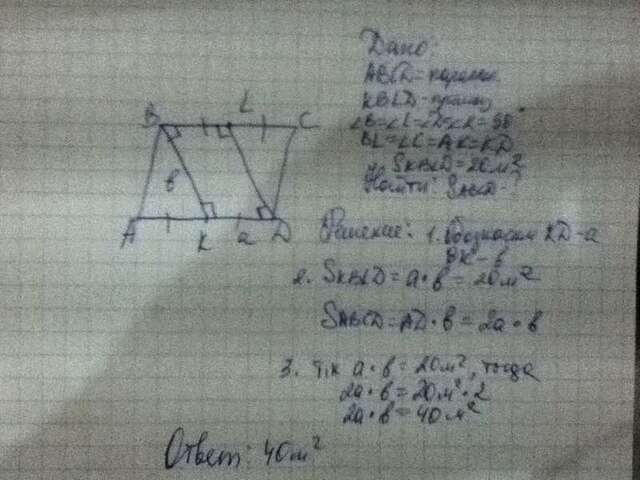 Дано:
ABCD - паралел.
KBLD - прямоуг.
∠B=∠L=∠D=∠K=90°
BL=LC=AK=KD
SKBLD=20м²
Найти: SABCD-?
B L C
в
A K a D
Решение: 1. Обозначим KD-a
BK-в
2. SKBLD=a·в=20м²
SABCD=AD·в=2a·в
3. т.к a·в=20м², тогда
2a·в=20м²·2
2a·в=40м²
Ответ: 40м²